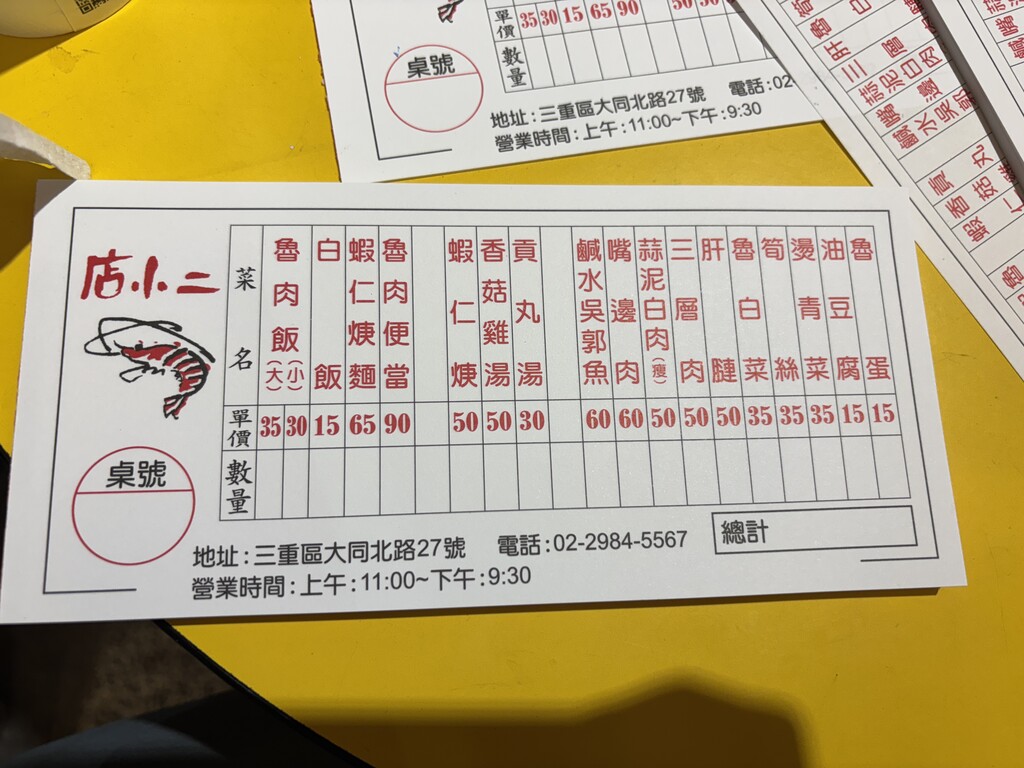 單價 35 30 15 65 90 50 50
數量
桌號
地址:三重區大同北路27號 電話:02
營業時間:上午:11:00~下午:9:30
店小二
菜名
魯肉飯(大)(小)
白飯
蝦仁焿麵
魯肉便當
蝦仁焿
香菇雞湯
貢丸湯
鹹水吳郭魚
嘴邊肉
蒜泥白肉(瘦)
三層肉
肝腱
魯白菜
筍絲
燙青菜
油豆腐
魯蛋
單價 35 30 15 65 90 50 50 30 60 60 50 50 50 35 35 35 15 15
數量
桌號
地址:三重區大同北路27號 電話:02-2984-5567
營業時間:上午:11:00~下午:9:30
總計